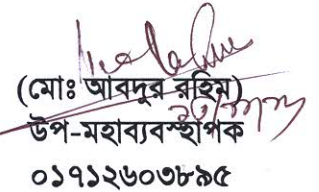 (মোঃ আবদুর রহিম)
উপ-মহাব্যবস্থাপক
০১৭১২৬০৩৮৯৫